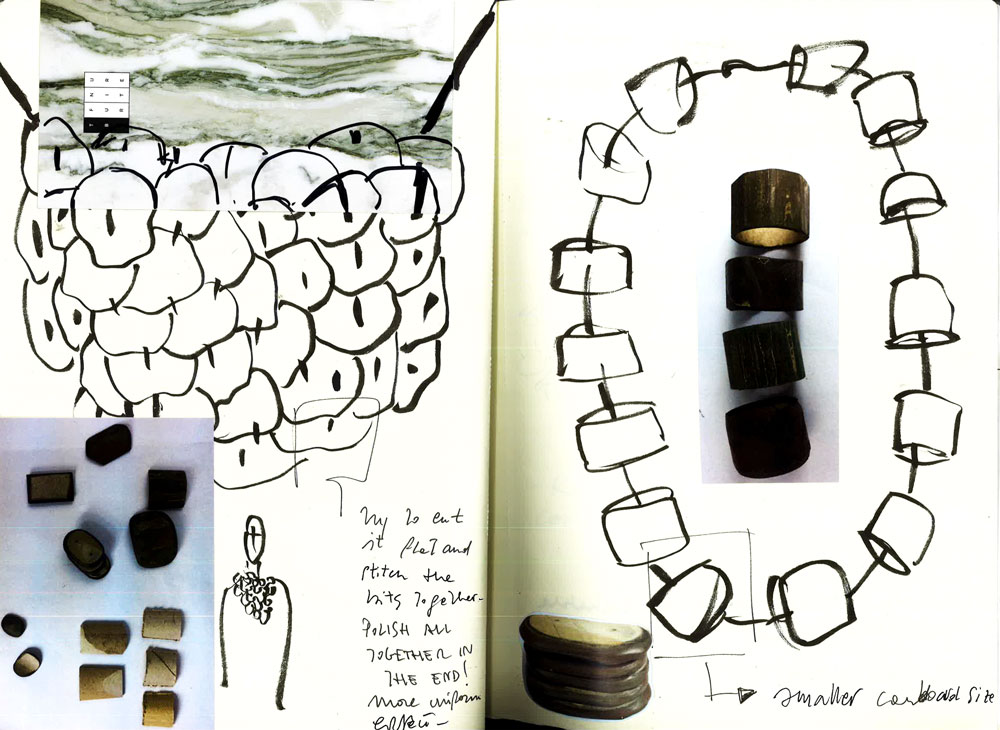 Try to cut
it flat and
stitch the
bits together-
POLISH ALL
TOGETHER IN
THE END!
more uniform
effect-
smaller size